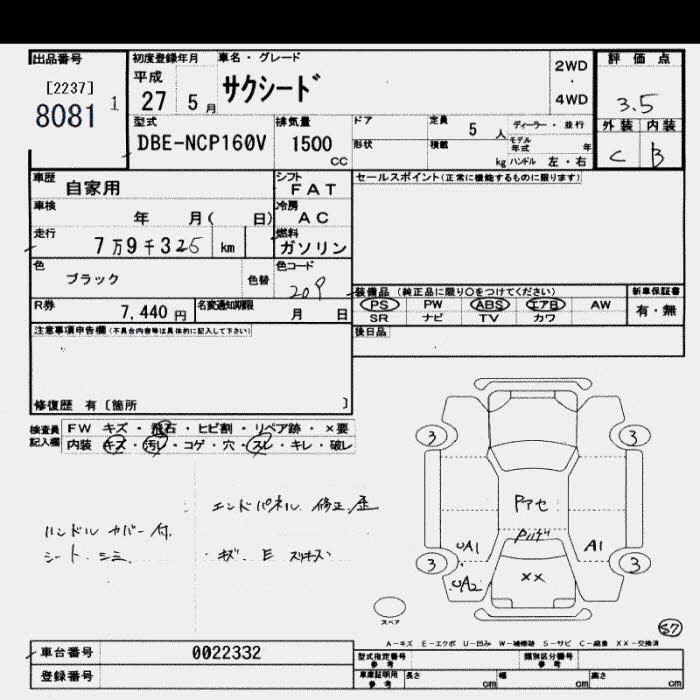 出品番号
[2237]
8081 1
初度登録年月
平成
27 5月
車名・グレード
サクシード
2WD
・
4WD
評価点
3.5
外装 内装
C B
型式
DBE-NCP160V
排気量
1500
CC
ドア
形状
定員
5 人
積載
kg
ディーラー・並行
モデル年式 年
ハンドル 左・右
車歴
自家用
シフト
FAT
セールスポイント(正常に機能するものに限ります)
車検
年 月( 日)
冷房
AC
走行
7万9千325 km
燃料
ガソリン
色
ブラック
色替
色コード
209
装備品 (純正品に限り○をつけてください)
PS PW ABS エアB AW
SR ナビ TV カワ
新車保証書
有・無
R券
7,440 円
名変通知期限
月 日
後日品
注意事項申告欄(不具合内容等は具体的に記入して下さい)
修復歴 有〔箇所 〕
検査員記入欄
FW キズ・飛石・ヒビ割・リペア跡・×要
内装 キズ・汚レ・コゲ・穴・スレ・キレ・破レ
エンドパネル 修正 歪
ハンドル カバー 付
シート シミ
・キズ E
3 3
Pアセ
UA1 A1
3 3
UA2 ××
スペア
57
A-キズ E-エクボ U-凹み W-補修跡 S-サビ C-腐食 XX-交換済
車台番号
0022332
登録番号
型式指定番号
参考
類別区分番号
参考
車庫証明用
参考
長さ cm 幅 cm 高さ cm